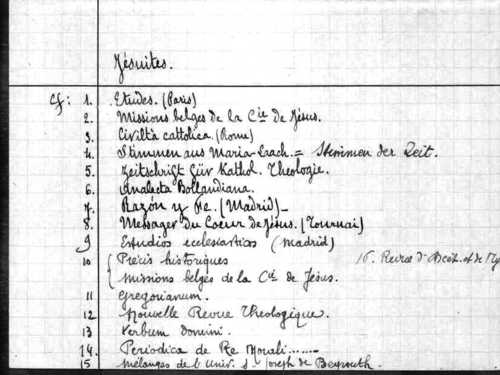 Jésuites.
cf: 1. Etudes. (Paris)
2. Missions belges de la Cie de Jésus.
3. Civiltà cattolica. (Rome)
4. Stimmen aus Maria-Laach. = Stimmen der Zeit.
5. Zeitschrift für Kathol. Theologie.
6. Analecta Bollandiana.
7. Razón y Fe. (Madrid)_
8. Messager du Coeur de Jésus. (Tournai)
9 Estudios eclesiasticos (Madrid)
10 Précis historiques 16. Revue d'Ascét. et de My
missions belges de la Cie de Jésus.
11 Gregorianum.
12 Nouvelle Revue Theologique.
13 Verbum Domini.
14. Periodica de Re Morali......
15 Mélanges de l'Univ. S. Joseph de Beyrouth.